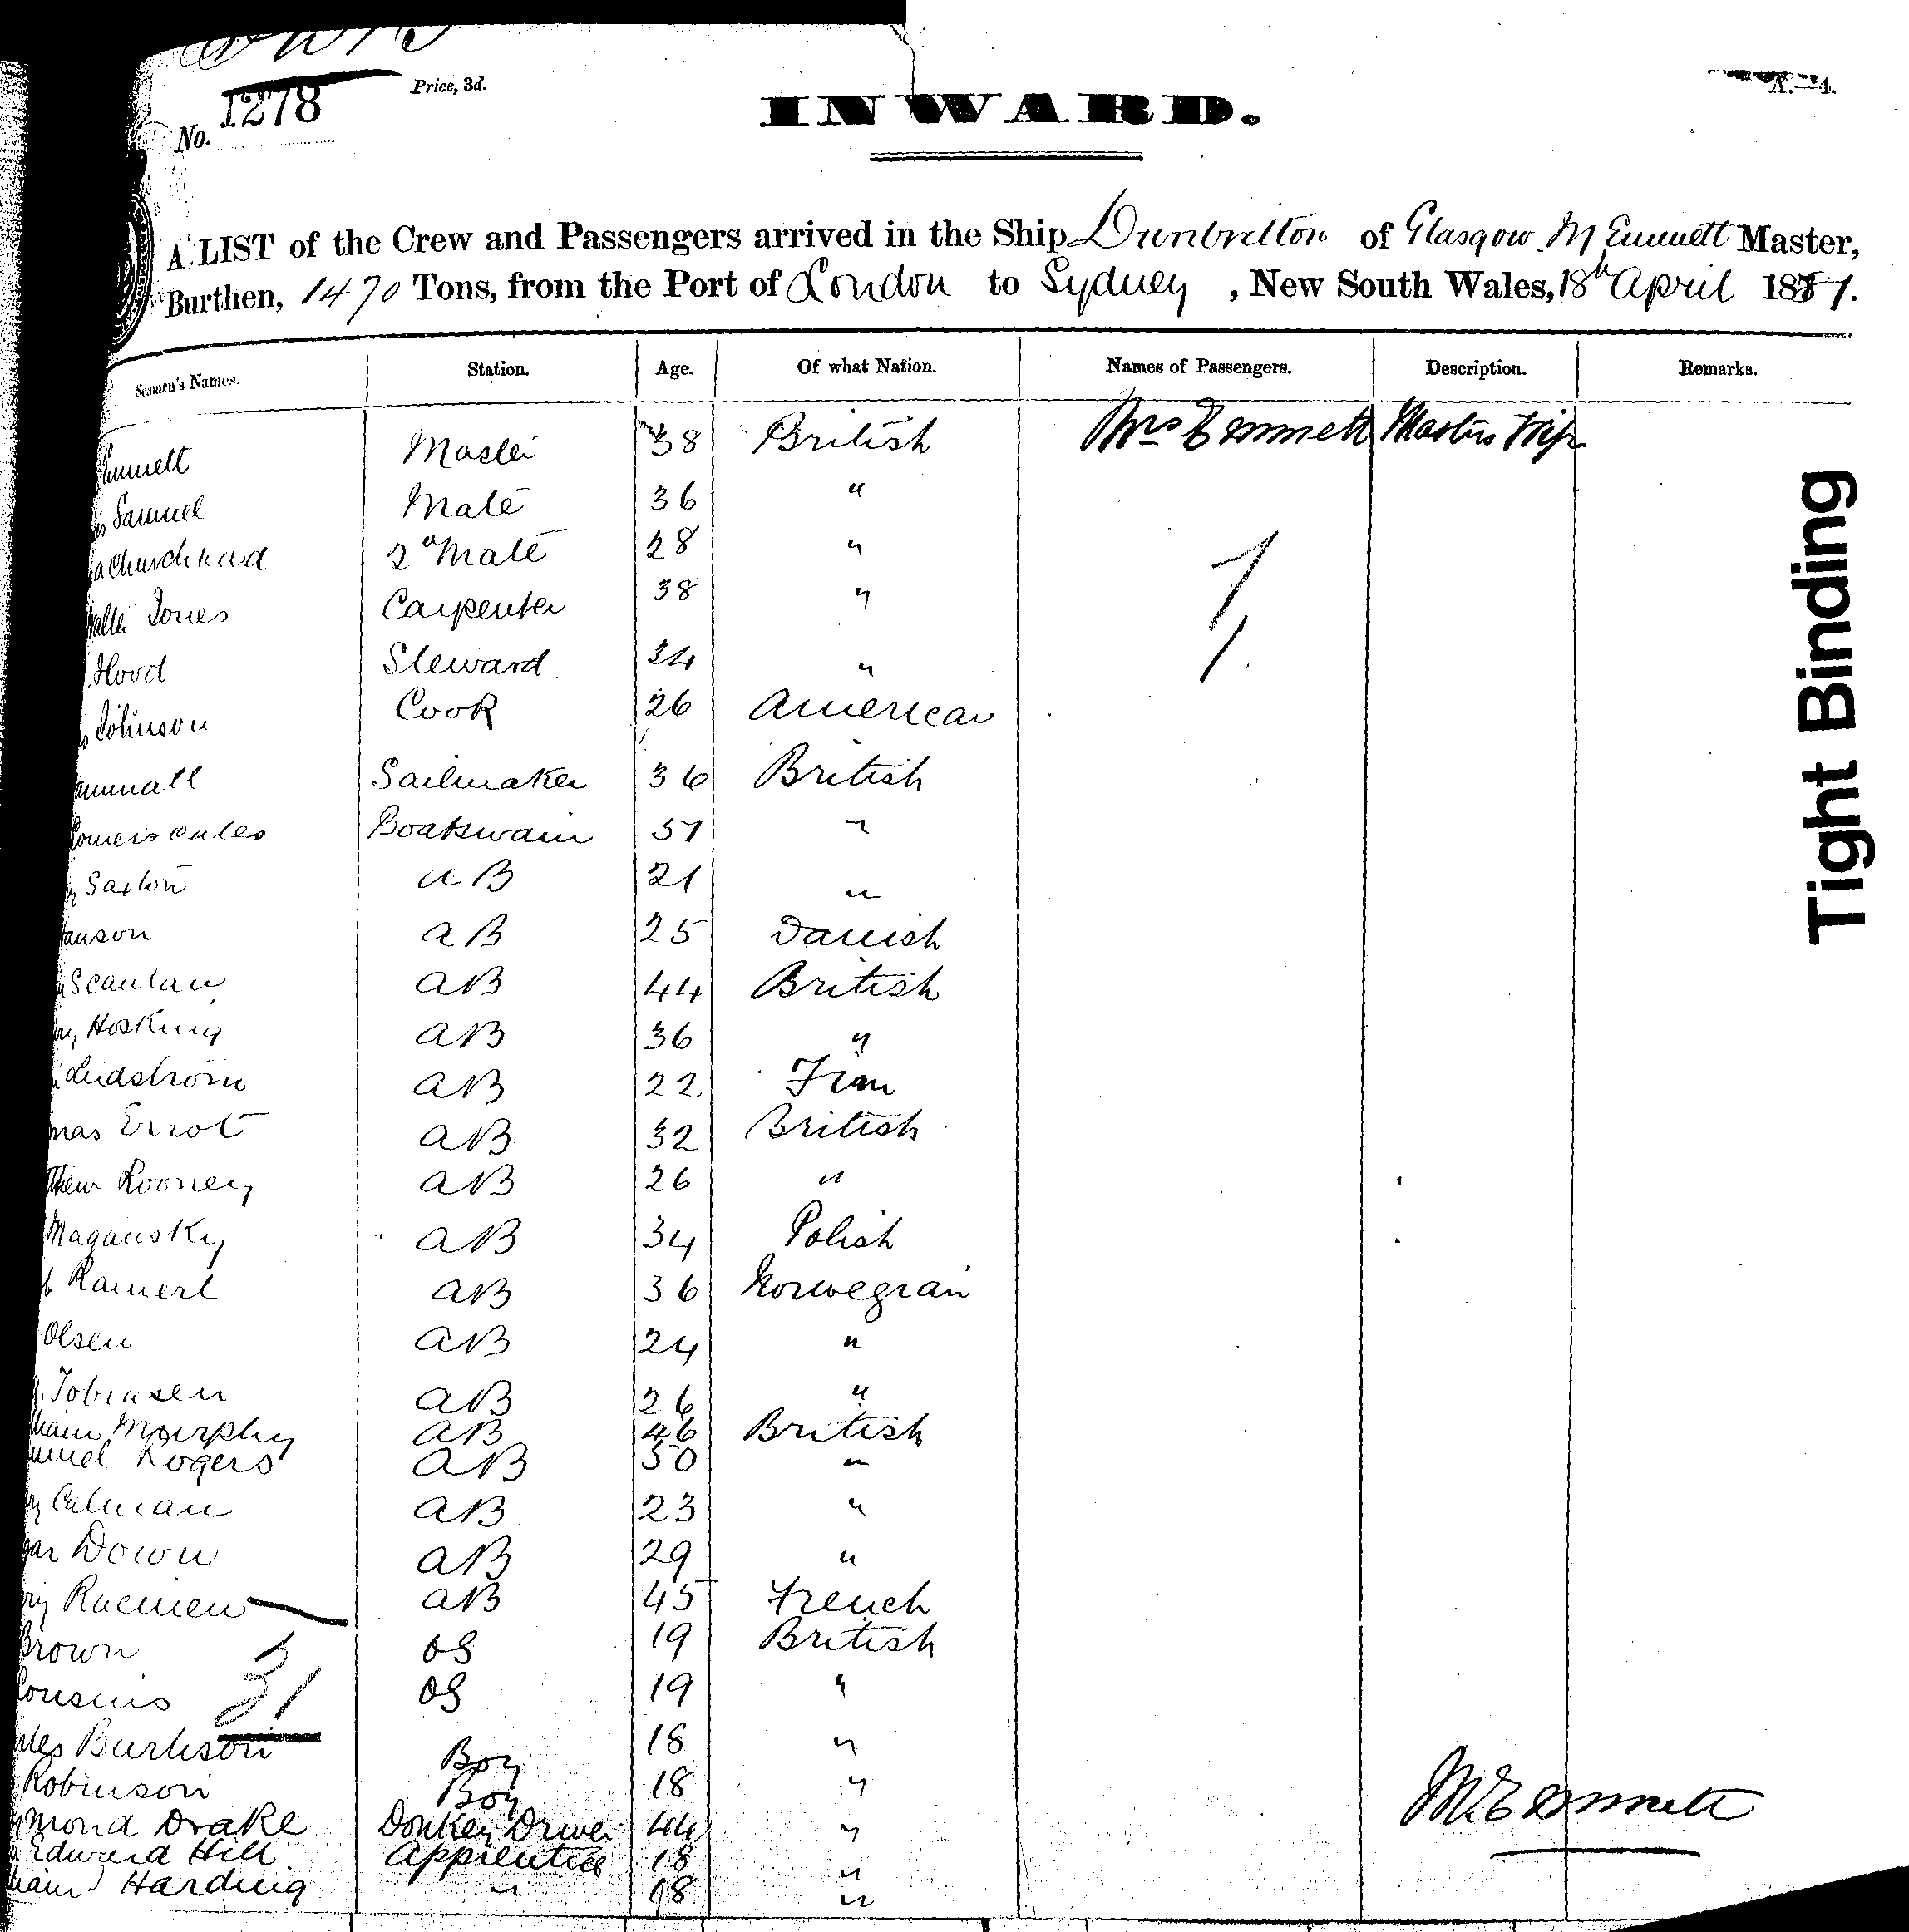 No. 1278
Price, 3d.
INWARD.
A.—4.
A LIST of the Crew and Passengers arrived in the Ship Dunbritton of Glasgow M Emmett Master,
Burthen, 1470 Tons, from the Port of London to Sydney, New South Wales, 18th April 1887.
Seamen's Names. Station. Age. Of what Nation. Names of Passengers. Description. Remarks.
Emmett Master 38 British Mrs Emmett Masters Wife
Samuel Mate 36 "
Churchward 2d Mate 28 "
Jones Carpenter 38 "
Hood Steward 34 "
Johnson Cook 26 American
Sailmaker 36 British
Boatswain 51 "
Saxton AB 21 "
anson AB 25 Danish
Scanlan AB 44 British
Hosking AB 36 "
Lindstrom AB 22 Finn
mas Errot AB 32 British
thew Rooney AB 26 "
Magansky AB 34 Polish
Ramert AB 36 Norwegian
Olsen AB 24 "
Tobiasen AB 26 "
liam Murphy AB 46 British
muel Rogers AB 50 "
Calman AB 23 "
gar Down AB 29 "
ry Racinen AB 45 French
Brown OS 19 British
Cousins OS 19 "
31
les Burkson Boy 18 "
Robinson Boy 18 "
mond Drake Donkey Driver 44 "
Edward Hill Apprentice 18 "
liam Harding " 18 "
1
1
M. Emmett
Tight Binding